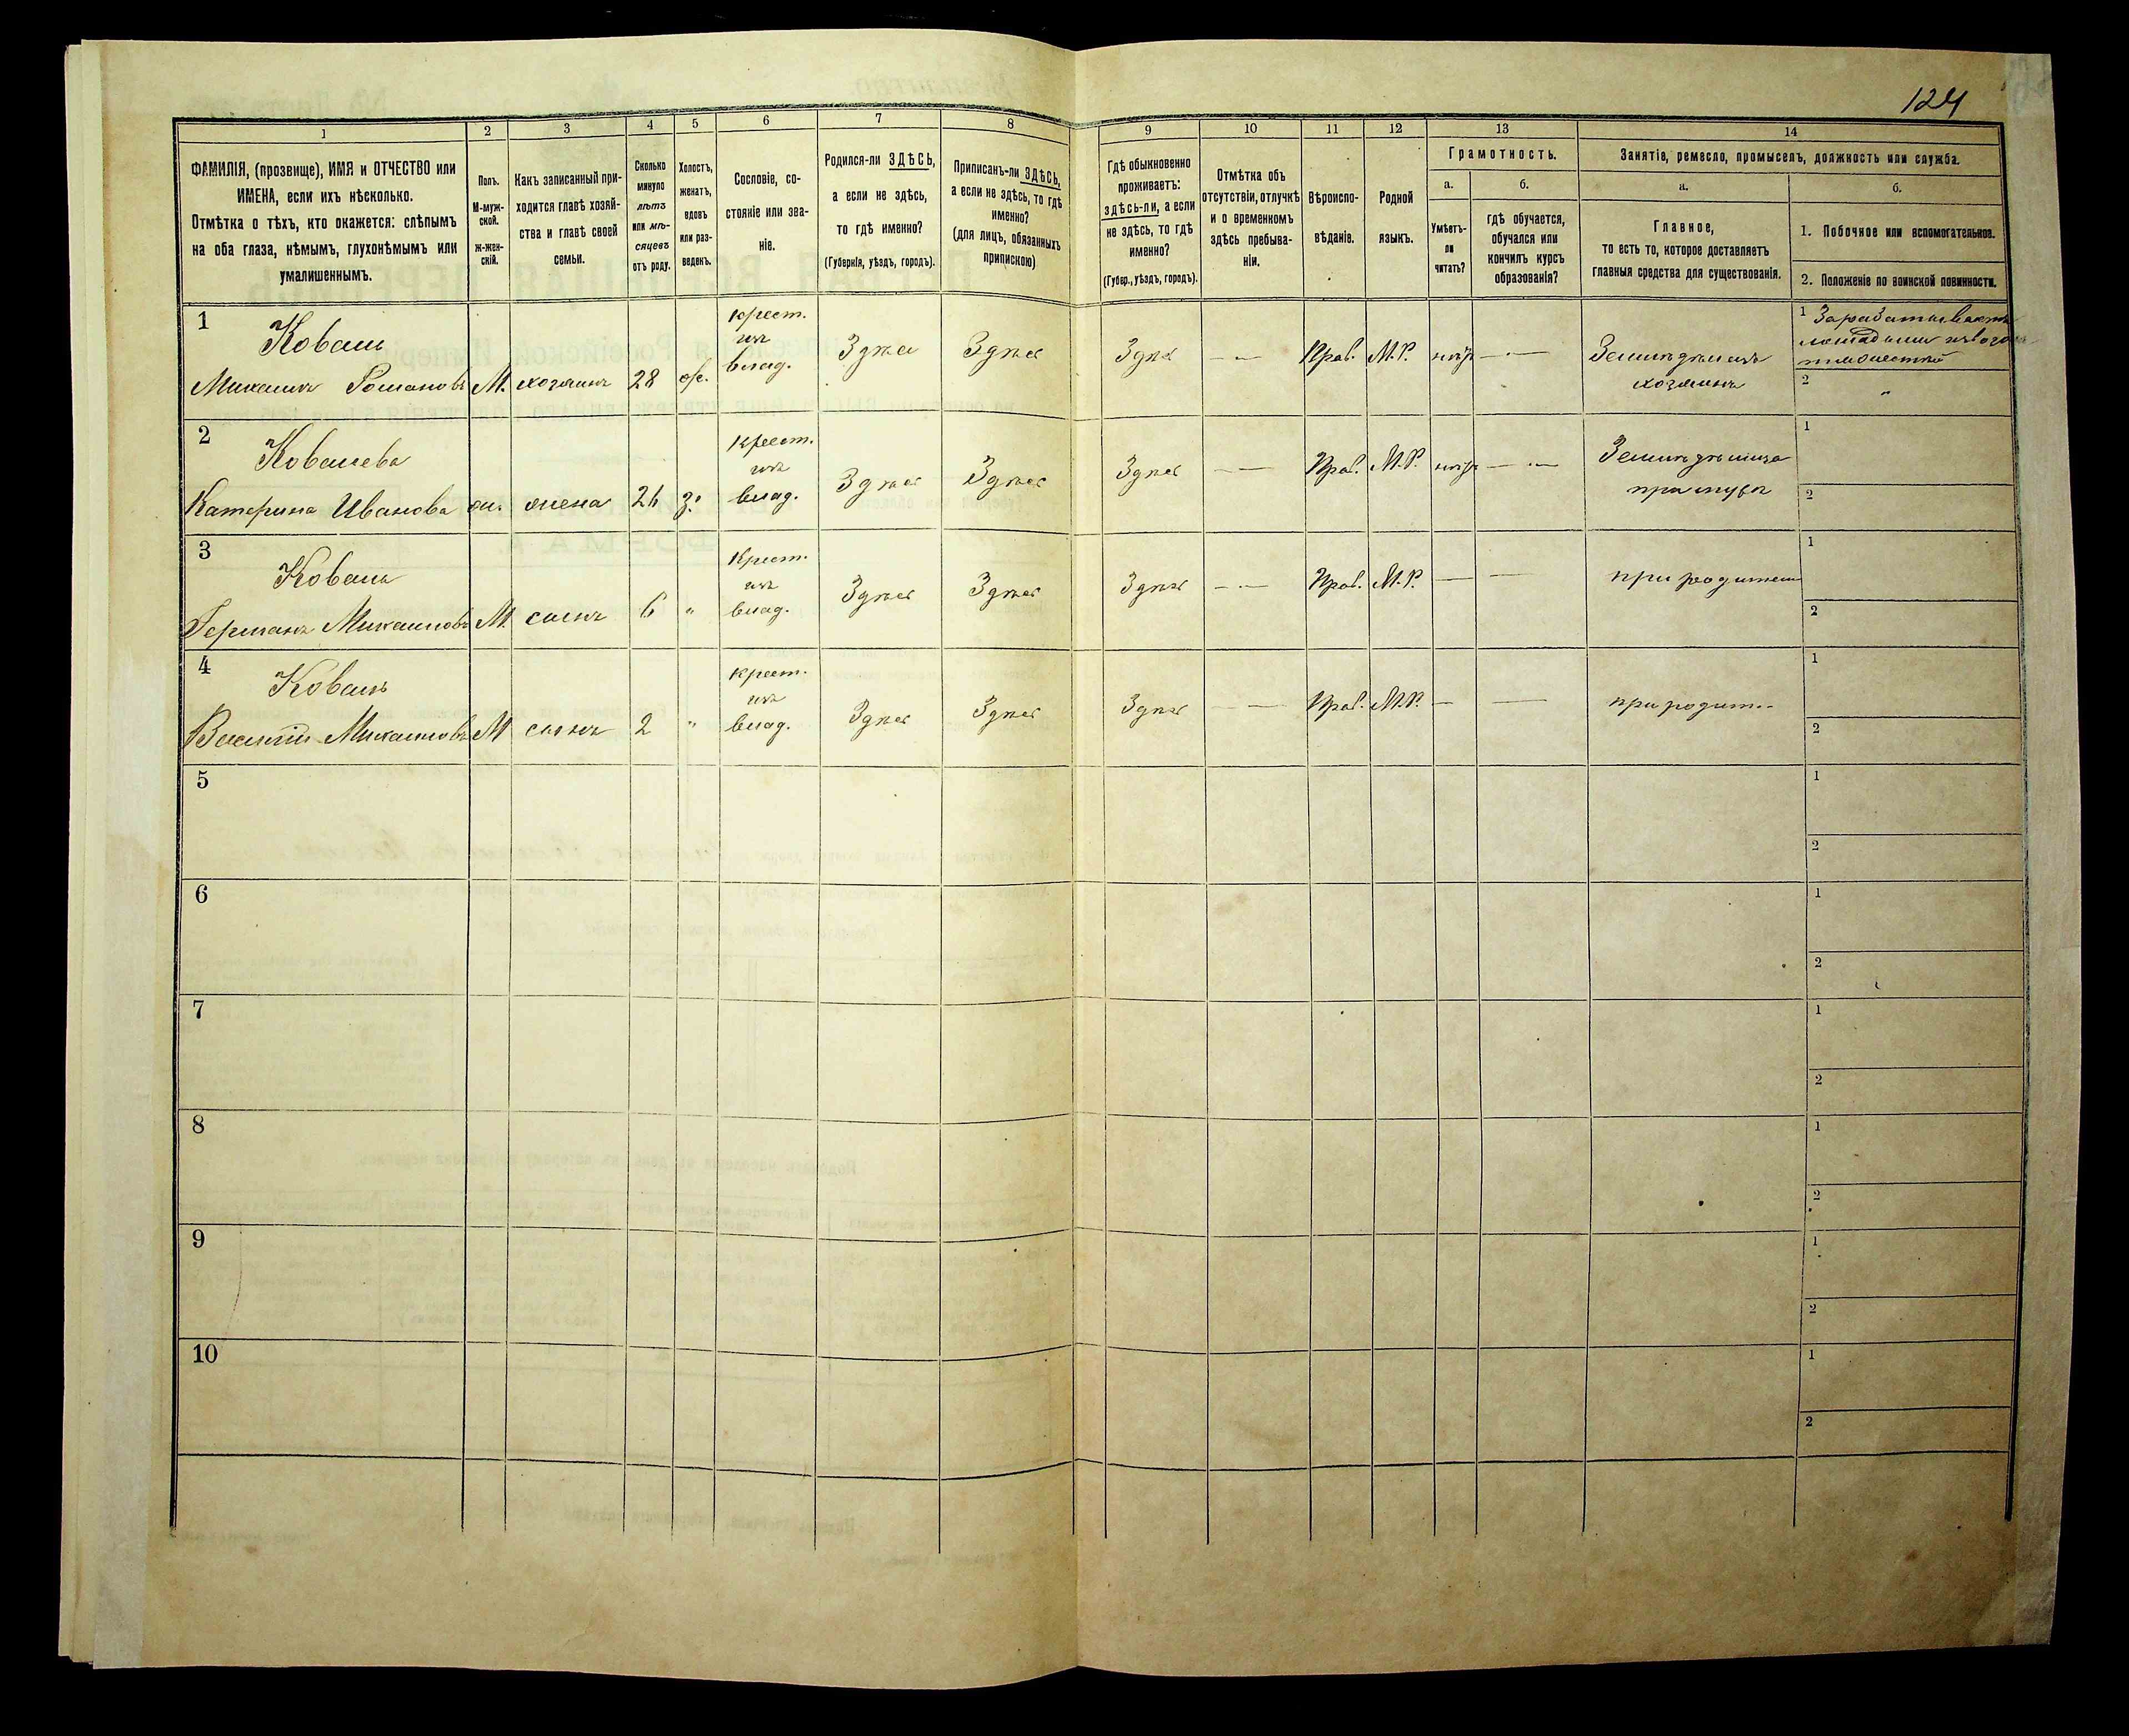 124
1 2 3 4 5 6 7 8 9 10 11 12 13 14
ФАМИЛІЯ, (прозвище), ИМЯ и ОТЧЕСТВО или
ИМЕНА, если ихъ нѣсколько.
Отмѣтка о тѣхъ, кто окажется: слѣпымъ
на оба глаза, нѣмымъ, глухонѣмымъ или
умалишеннымъ.
Полъ.
М-муж-
ской.
Ж-жен-
скій.
Какъ записанный при-
ходится главѣ хозяй-
ства и главѣ своей
семьи.
Сколько
минуло
лѣтъ
или мѣ-
сяцевъ
отъ роду.
Холостъ,
женатъ,
вдовъ
или раз-
веденъ.
Сословіе, со-
стояніе или зва-
ніе.
Родился-ли ЗДѢСЬ,
а если не здѣсь,
то гдѣ именно?
(Губернія, уѣздъ, городъ).
Приписанъ-ли ЗДѢСЬ,
а если не здѣсь, то гдѣ
именно?
(для лицъ, обязанныхъ
припискою)
Гдѣ обыкновенно
проживаетъ:
здѣсь-ли, а если
не здѣсь, то гдѣ
именно?
(Губер., уѣздъ, городъ).
Отмѣтка объ
отсутствіи, отлучкѣ
и о временномъ
здѣсь пребыва-
ніи.
Вѣроиспо-
вѣданіе.
Родной
языкъ.
Грамотность.
а.
Умѣетъ-
ли
читать?
б.
гдѣ обучается,
обучался или
кончилъ курсъ
образованія?
Занятіе, ремесло, промыселъ, должность или служба.
а.
Главное,
то есть то, которое доставляетъ
главныя средства для существованія.
б.
1. Побочное или вспомогательное.
2. Положеніе по воинской повинности.
1
Коваль
Михаилъ Романовъ М. хозяинъ 28 ж.
крест.
изъ
влад.
Здѣсь Здѣсь Здѣсь — — Прав. М.Р. нѣтъ — —
Земледѣлецъ
хозяинъ
1 Зарабатываетъ
лошадьми
2 "
2
Ковалева
Катерина Иванова ж. жена 26 з.
крест.
изъ
влад.
Здѣсь Здѣсь Здѣсь — — Прав. М.Р. нѣтъ — —
Земледѣлица
при мужѣ
1
2
3
Коваль
Германъ Михаиловъ М. сынъ 6 "
Крест.
изъ
влад.
Здѣсь Здѣсь Здѣсь — — Прав. М.Р. — —
при родител
1
2
4
Коваль
Василій Михаиловъ М сынъ 2 "
крест.
изъ
влад.
Здѣсь Здѣсь Здѣсь — — Прав. М.Р. — —
при родит.
1
2
5
1
2
6
1
2
7
1
2
8
1
2
9
1
2
10
1
2